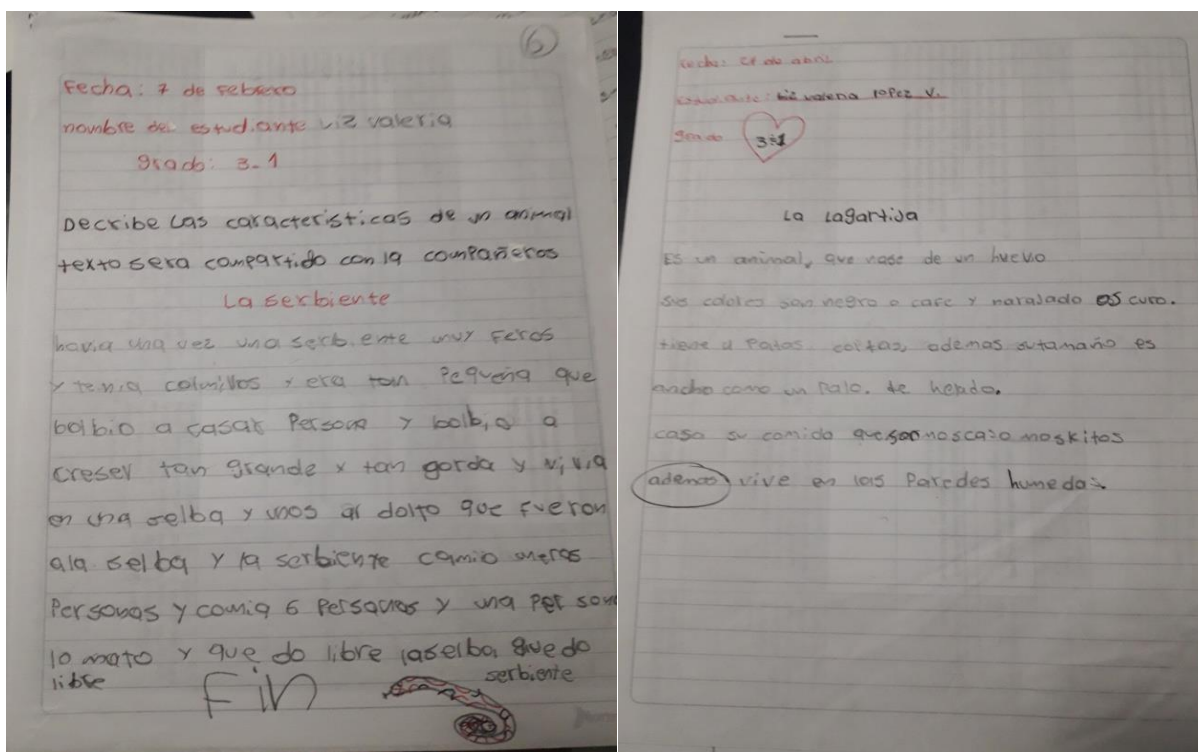 6
Fecha: 7 de febrero
nombre de estudiante Liz valeria
grado: 3-1
Decribe Las caracteristicas de un animal
texto sera compartido con la compañeros
La serbiente
havia una vez una serbiente muy feros
y tenia colmillos y era tan Pequeña que
bolbio a casar Persona y bolbio a
creser tan grande y tan gorda y vivia
en una selba y unos adolto que fueron
ala selba y la serbiente camio meras
Personas y comia 6 Personas y una Person
lo mato y que do libre laselba quedo
libre
Fin
serbiente
fecha: de abril
estudiante: liz valeria lopez V.
grado 3-1
La Lagartija
ES un animal, que nase de un huevo
sus colores son negro o cafe y naralado oscuro.
tiene 4 Patas cortas, ademas sutamaño es
ancho como un Palo. de helado.
casa su comida que son moscas o moskitos
ademas vive en las Paredes humedas.